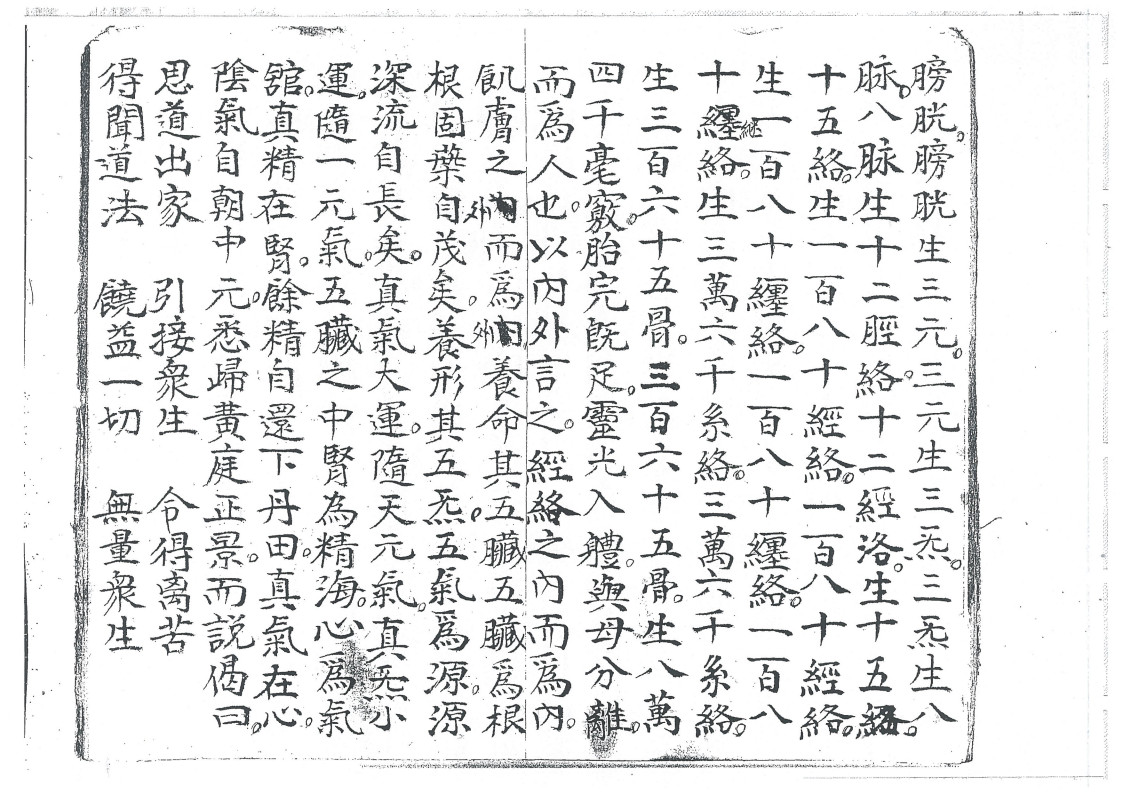 膀胱。膀胱生三元。三元生三炁。三炁生八
脉。八脉生十二脛絡。十二經洛。生十五絡。
十五絡。生一百八十經絡。一百八十經絡。
生一百八十纒絡。一百八十纒絡。一百八
十纒絡。生三萬六千系絡。三萬六千系絡。
生三百六十五骨。三百六十五骨。生八萬
四千毫竅。胎完旣足。靈光入軆。與母分離。
而爲人也。以内外言之。經絡之內而爲內。
飢膚之外而爲外養命其五臟五臟爲根
根固藥自茂矣。養形其五炁。五氣爲源。源
深流自長矣。真氣大運。隨天元氣。真炁小
運。隨一元氣。五臟之中腎為精海。心爲氣
舘。真精在腎。餘精自還下丹田。真氣在心。
陰氣自朝中元。悉歸黃庭正景。而説偈曰。
思道出家　引接衆生　令得离苦
得聞道法　饒益一切　無量衆生